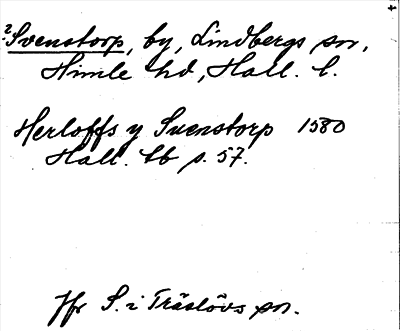 ?Svenstorp, by, Lindbergs sn,
Himle hd, Hall. l.
Herloffs y Suenstorp 1580
Hall. tb s. 57.
Jfr S. i Träslövs sn.